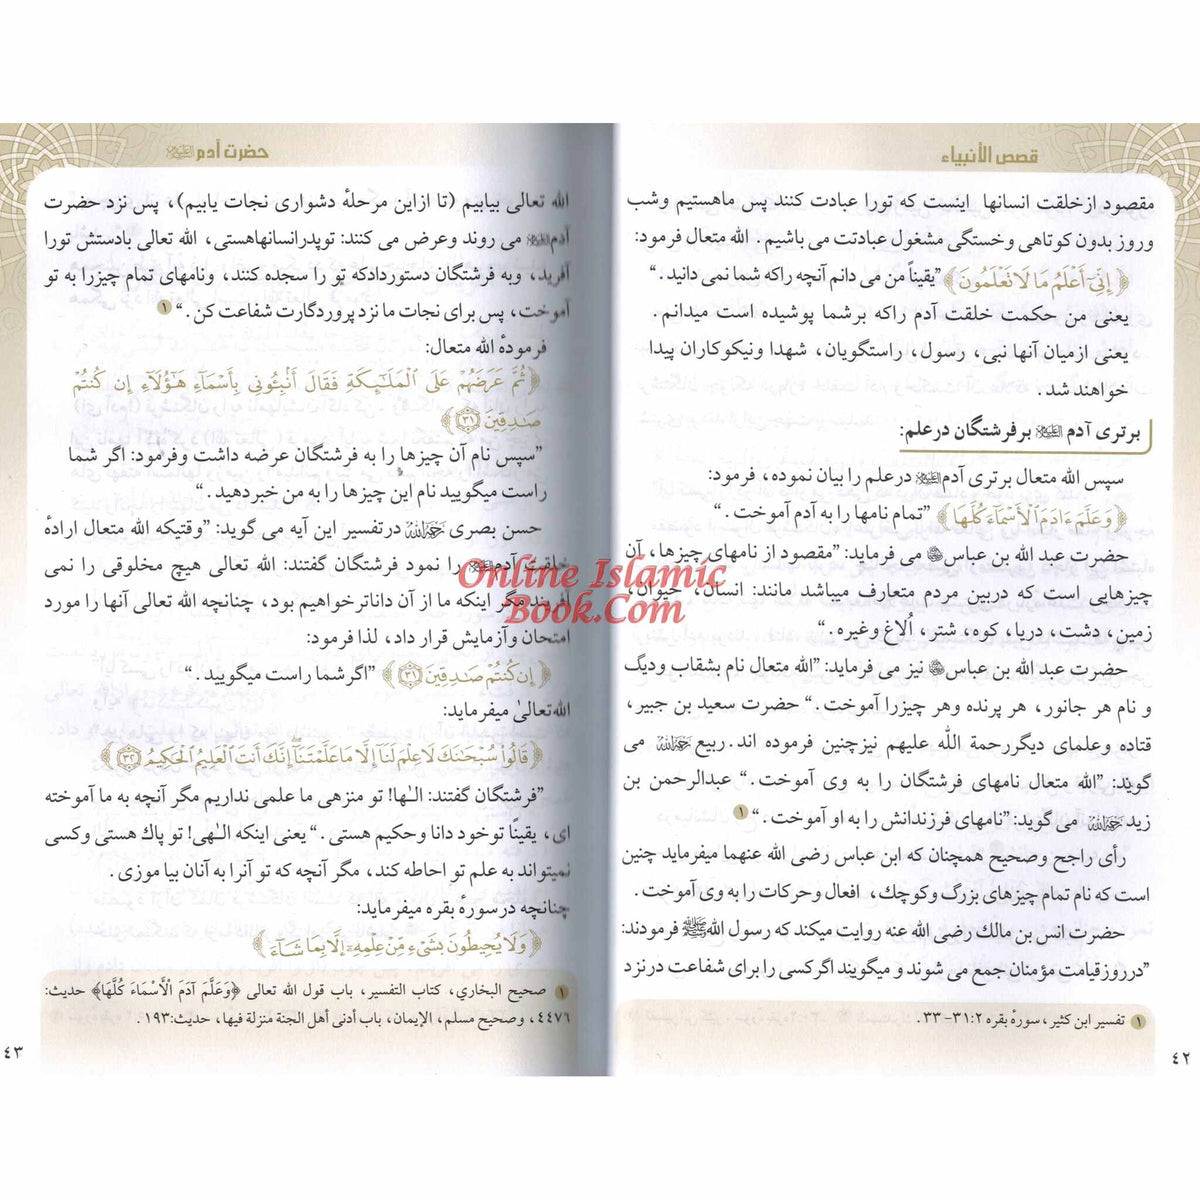 قصص الأنبياء
مقصود ازخلقت انسانها اینست که تورا عبادت کنند پس ماهستیم وشب
وروز بدون کوتاهی وخستگی مشغول عبادتت می باشیم . الله متعال فرمود:
﴿ إِنِّيٓ أَعْلَمُ مَا لَا نَعْلَمُونَ ﴾ ”یقیناً من می دانم آنچه راکه شما نمی دانید .“
یعنی من حکمت خلقت آدم راکه برشما پوشیده است میدانم .
یعنی ازمیان آنها نبی، رسول، راستگویان، شهدا ونیکوکاران پیدا
خواهند شد .
برتری آدم علیه السلام برفرشتگان درعلم:
سپس الله متعال برتری آدم علیه السلام درعلم را بیان نموده، فرمود:
﴿ وَعَلَّمَ ءَادَمَ ٱلْأَسْمَآءَ كُلَّهَا ﴾ ”تمام نامها را به آدم آموخت .“
حضرت عبد الله بن عباس می فرماید: ”مقصود از نامهای چیزها، آن
چیزهایی است که دربین مردم متعارف میباشد مانند: انسان، حیوان،
زمین، دشت، دریا، کوه، شتر، اُلاغ وغیره .“
حضرت عبد الله بن عباس نیز می فرماید: ”الله متعال نام بشقاب ودیگ
و نام هر جانور، هر پرنده وهر چیزرا آموخت .“ حضرت سعید بن جبیر،
قتاده وعلمای دیگررحمة الله علیهم نیزچنین فرموده اند. ربیع رحمه الله می
گوید: ”الله متعال نامهای فرشتگان را به وی آموخت .“ عبدالرحمن بن
زید رحمه الله می گوید: ”نامهای فرزندانش را به او آموخت .“ ١
رأی راجح وصحیح همچنان که ابن عباس رضی الله عنهما میفرماید چنین
است که نام تمام چیزهای بزرگ وکوچك، افعال وحرکات را به وی آموخت .
حضرت انس بن مالك رضی الله عنه روایت میکند که رسول الله ﷺ فرمودند:
”درروزقیامت مؤمنان جمع می شوند و میگویند اگرکسی را برای شفاعت درنزد
١ تفسیر ابن کثیر، سورهٔ بقره ٢:٣١-٣٣ .
٤٢
حضرت آدم علیه السلام
الله تعالی بیابیم (تا ازاین مرحلهٔ دشواری نجات یابیم)، پس نزد حضرت
آدم علیه السلام می روند وعرض می کنند: توپدرانسانهاهستی، الله تعالی بادستش تورا
آفرید، وبه فرشتگان دستوردادکه تو را سجده کنند، ونامهای تمام چیزرا به تو
آموخت، پس برای نجات ما نزد پروردگارت شفاعت کن .“ ١
فرمودهٔ الله متعال:
﴿ ثُمَّ عَرَضَهُمْ عَلَى ٱلْمَلَٰٓئِكَةِ فَقَالَ أَنۢبِـُٔونِى بِأَسْمَآءِ هَٰٓؤُلَآءِ إِن كُنتُمْ
صَٰدِقِينَ ٣١ ﴾
”سپس نام آن چیزها را به فرشتگان عرضه داشت وفرمود: اگر شما
راست میگویید نام این چیزها را به من خبردهید .“
حسن بصری رحمه الله درتفسیر این آیه می گوید: ”وقتیکه الله متعال ارادهٔ
خلقت آدم علیه السلام را نمود فرشتگان گفتند: الله تعالی هیچ مخلوقی را نمی
آفریند مگر اینکه ما از آن داناترخواهیم بود، چنانچه الله تعالی آنها را مورد
امتحان وآزمایش قرار داد، لذا فرمود:
﴿ إِن كُنتُمْ صَٰدِقِينَ ٣١ ﴾ ”اگرشما راست میگویید .“
الله تعالیٰ میفرماید:
﴿ قَالُوا۟ سُبْحَٰنَكَ لَا عِلْمَ لَنَآ إِلَّا مَا عَلَّمْتَنَآ إِنَّكَ أَنتَ ٱلْعَلِيمُ ٱلْحَكِيمُ ٣٢ ﴾
”فرشتگان گفتند: الٰها! تو منزهی ما علمی نداریم مگر آنچه به ما آموخته
ای، یقیناً توخود دانا وحکیم هستی .“ یعنی اینکه الٰهی! تو پاك هستی وکسی
نمیتواند به علم تو احاطه کند، مگر آنچه که تو آنرا به آنان بیا موزی .
چنانچه درسورهٔ بقره میفرماید:
﴿ وَلَا يُحِيطُونَ بِشَىْءٍ مِّنْ عِلْمِهِۦٓ إِلَّا بِمَا شَآءَ ﴾
١ صحیح البخاري، کتاب التفسیر، باب قول الله تعالی ﴿وَعَلَّمَ آدَمَ الْأَسْمَاءَ كُلَّهَا﴾ حدیث:
٤٤٧٦، وصحیح مسلم، الإیمان، باب أدنی أهل الجنة منزلة فیها، حدیث:١٩٣ .
٤٣
Online Islamic
Book.Com